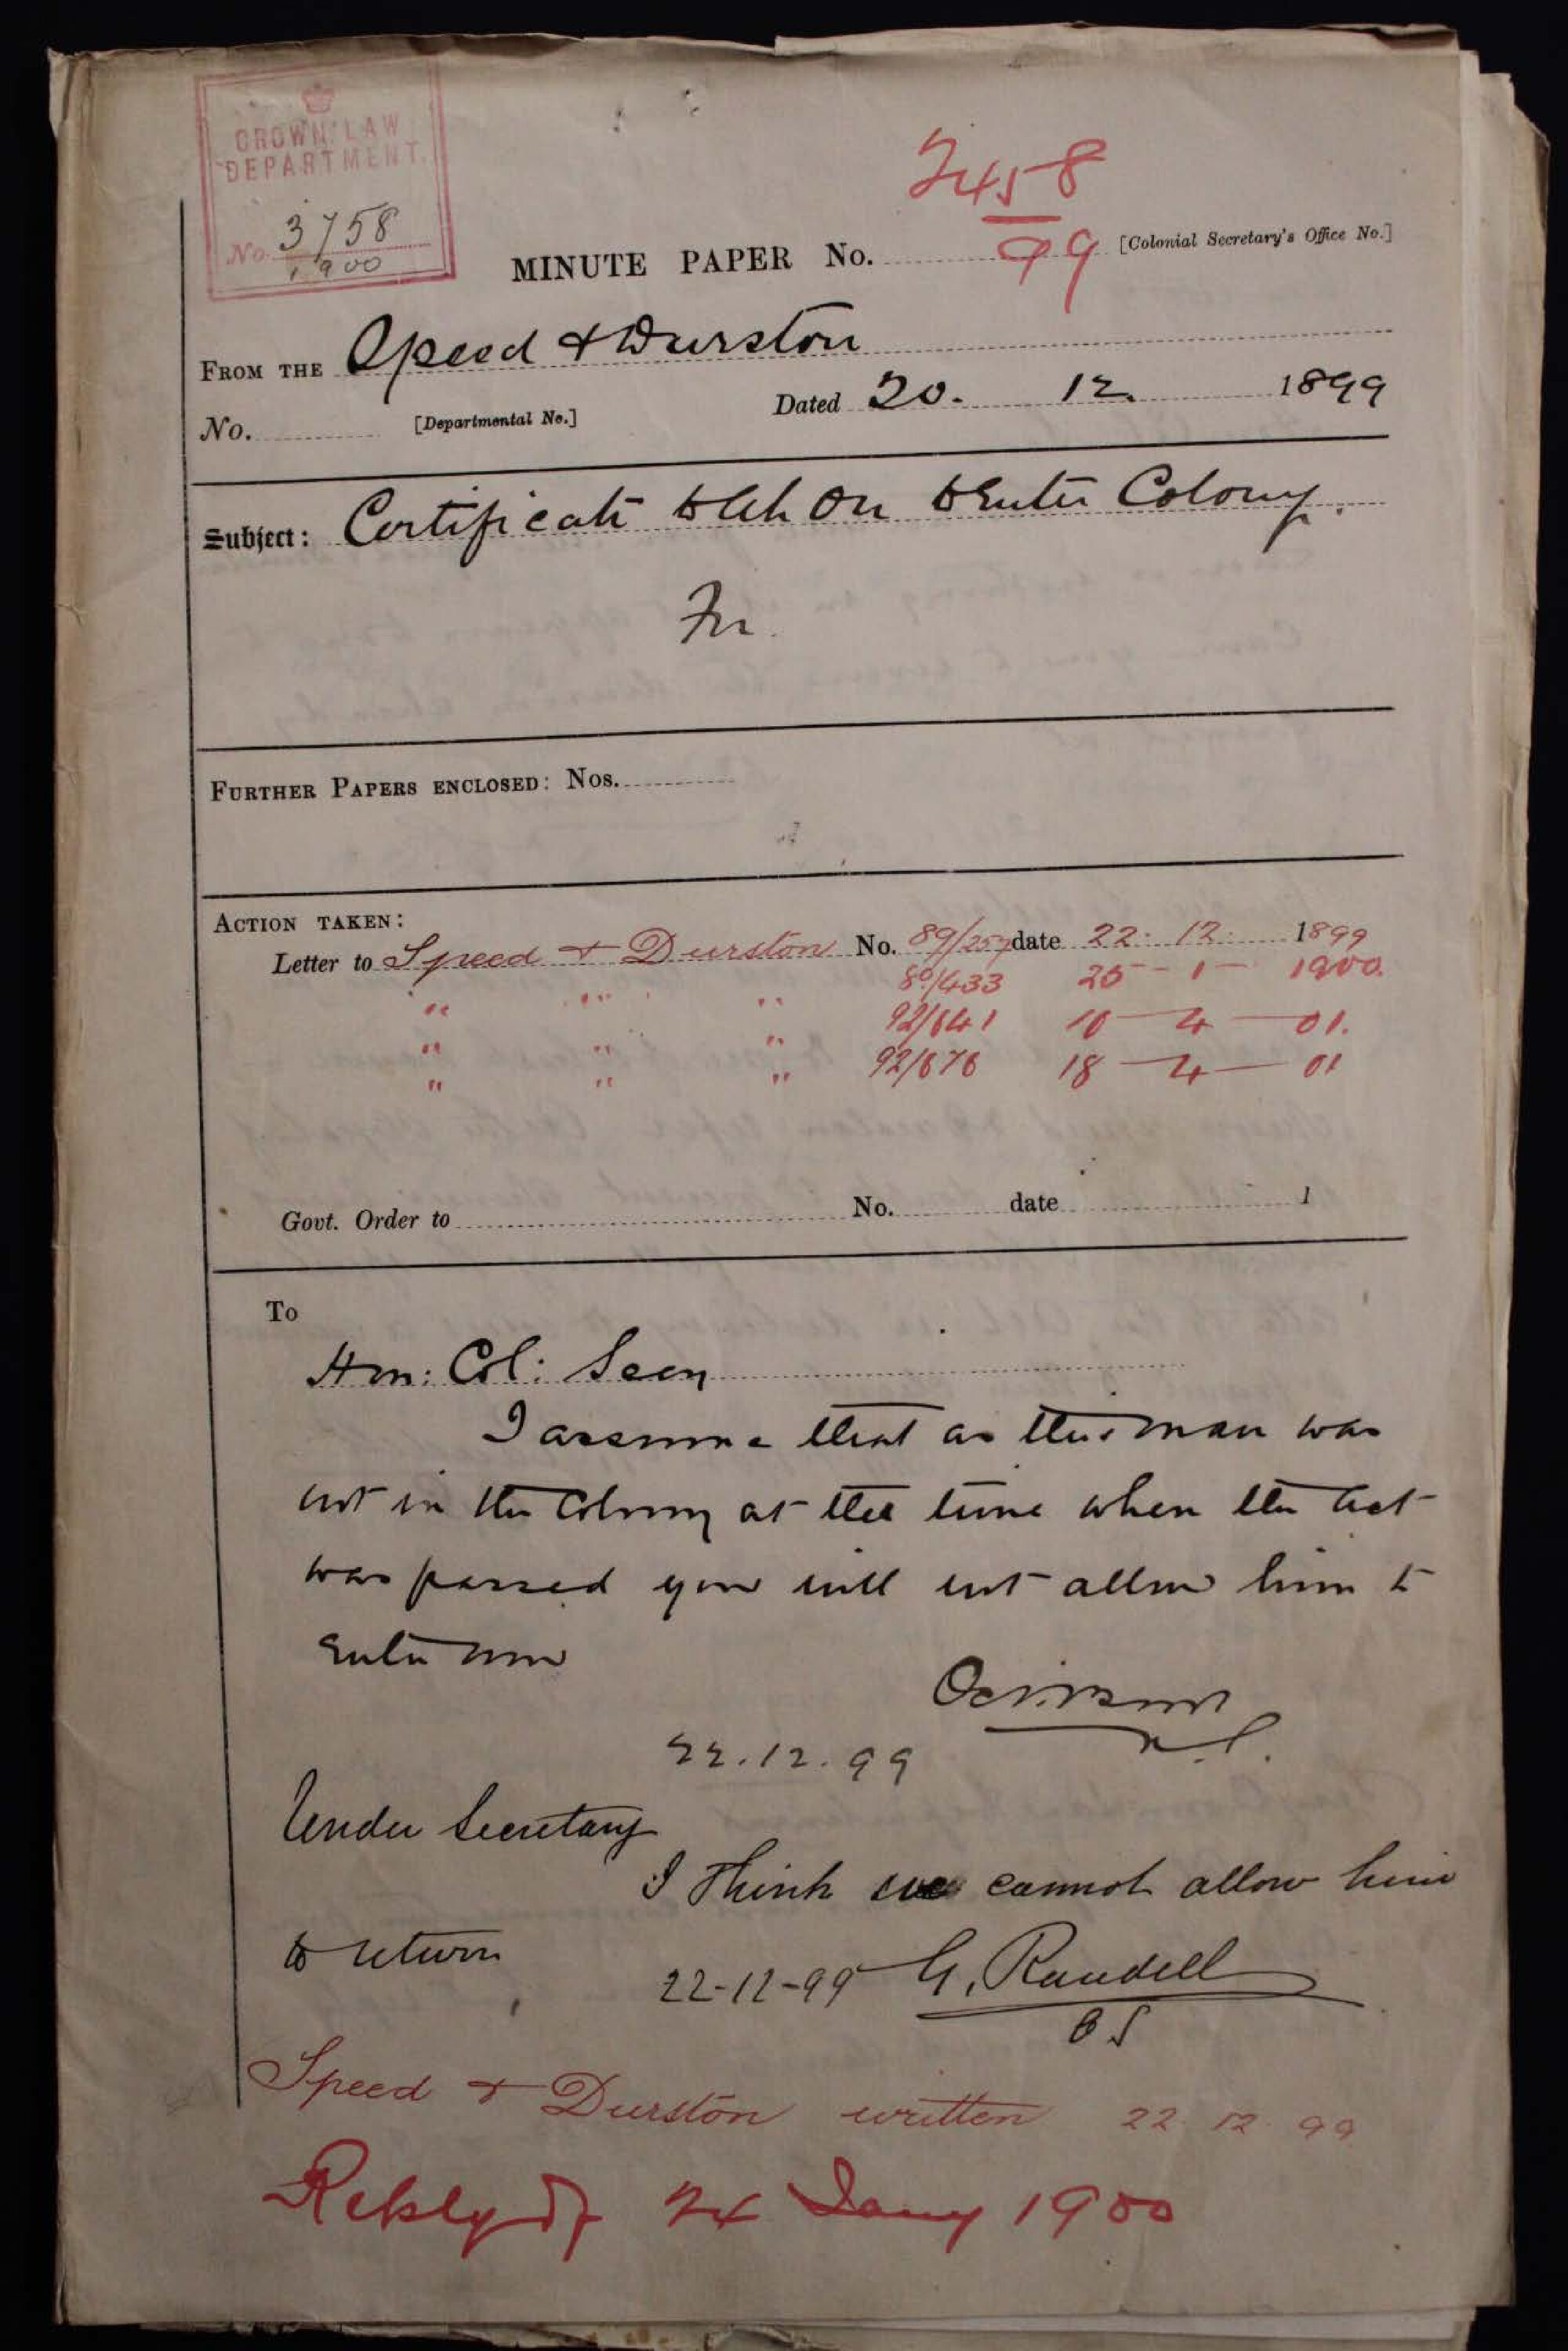 CROWN LAW
DEPARTMENT.
No. 3758
1900
2458
99
MINUTE PAPER No. [Colonial Secretary's Office No.]
FROM THE Speed & Durston
No. [Departmental No.] Dated 20. 12. 1899
Subject: Certificate to Ah On to Enter Colony.
For
FURTHER PAPERS ENCLOSED: Nos.
ACTION TAKEN:
Letter to Speed & Durston No. 89/257 date 22. 12. 1899
" " " 89/433 25 - 1 - 1900.
" " " 92/641 10 - 4 - 01.
" " " 92/676 18 - 4 - 01
Govt. Order to No. date 1
To
Hon: Col: Secy
I assume that as this man was
not in the Colony at the time when the Act
was passed you will not allow him to
enter now
22.12.99
Under Secretary
I think we cannot allow him
to return
22-12-99 G. Randell
CS
Speed & Durston written 22 12 99
Reply 24 Jany 1900